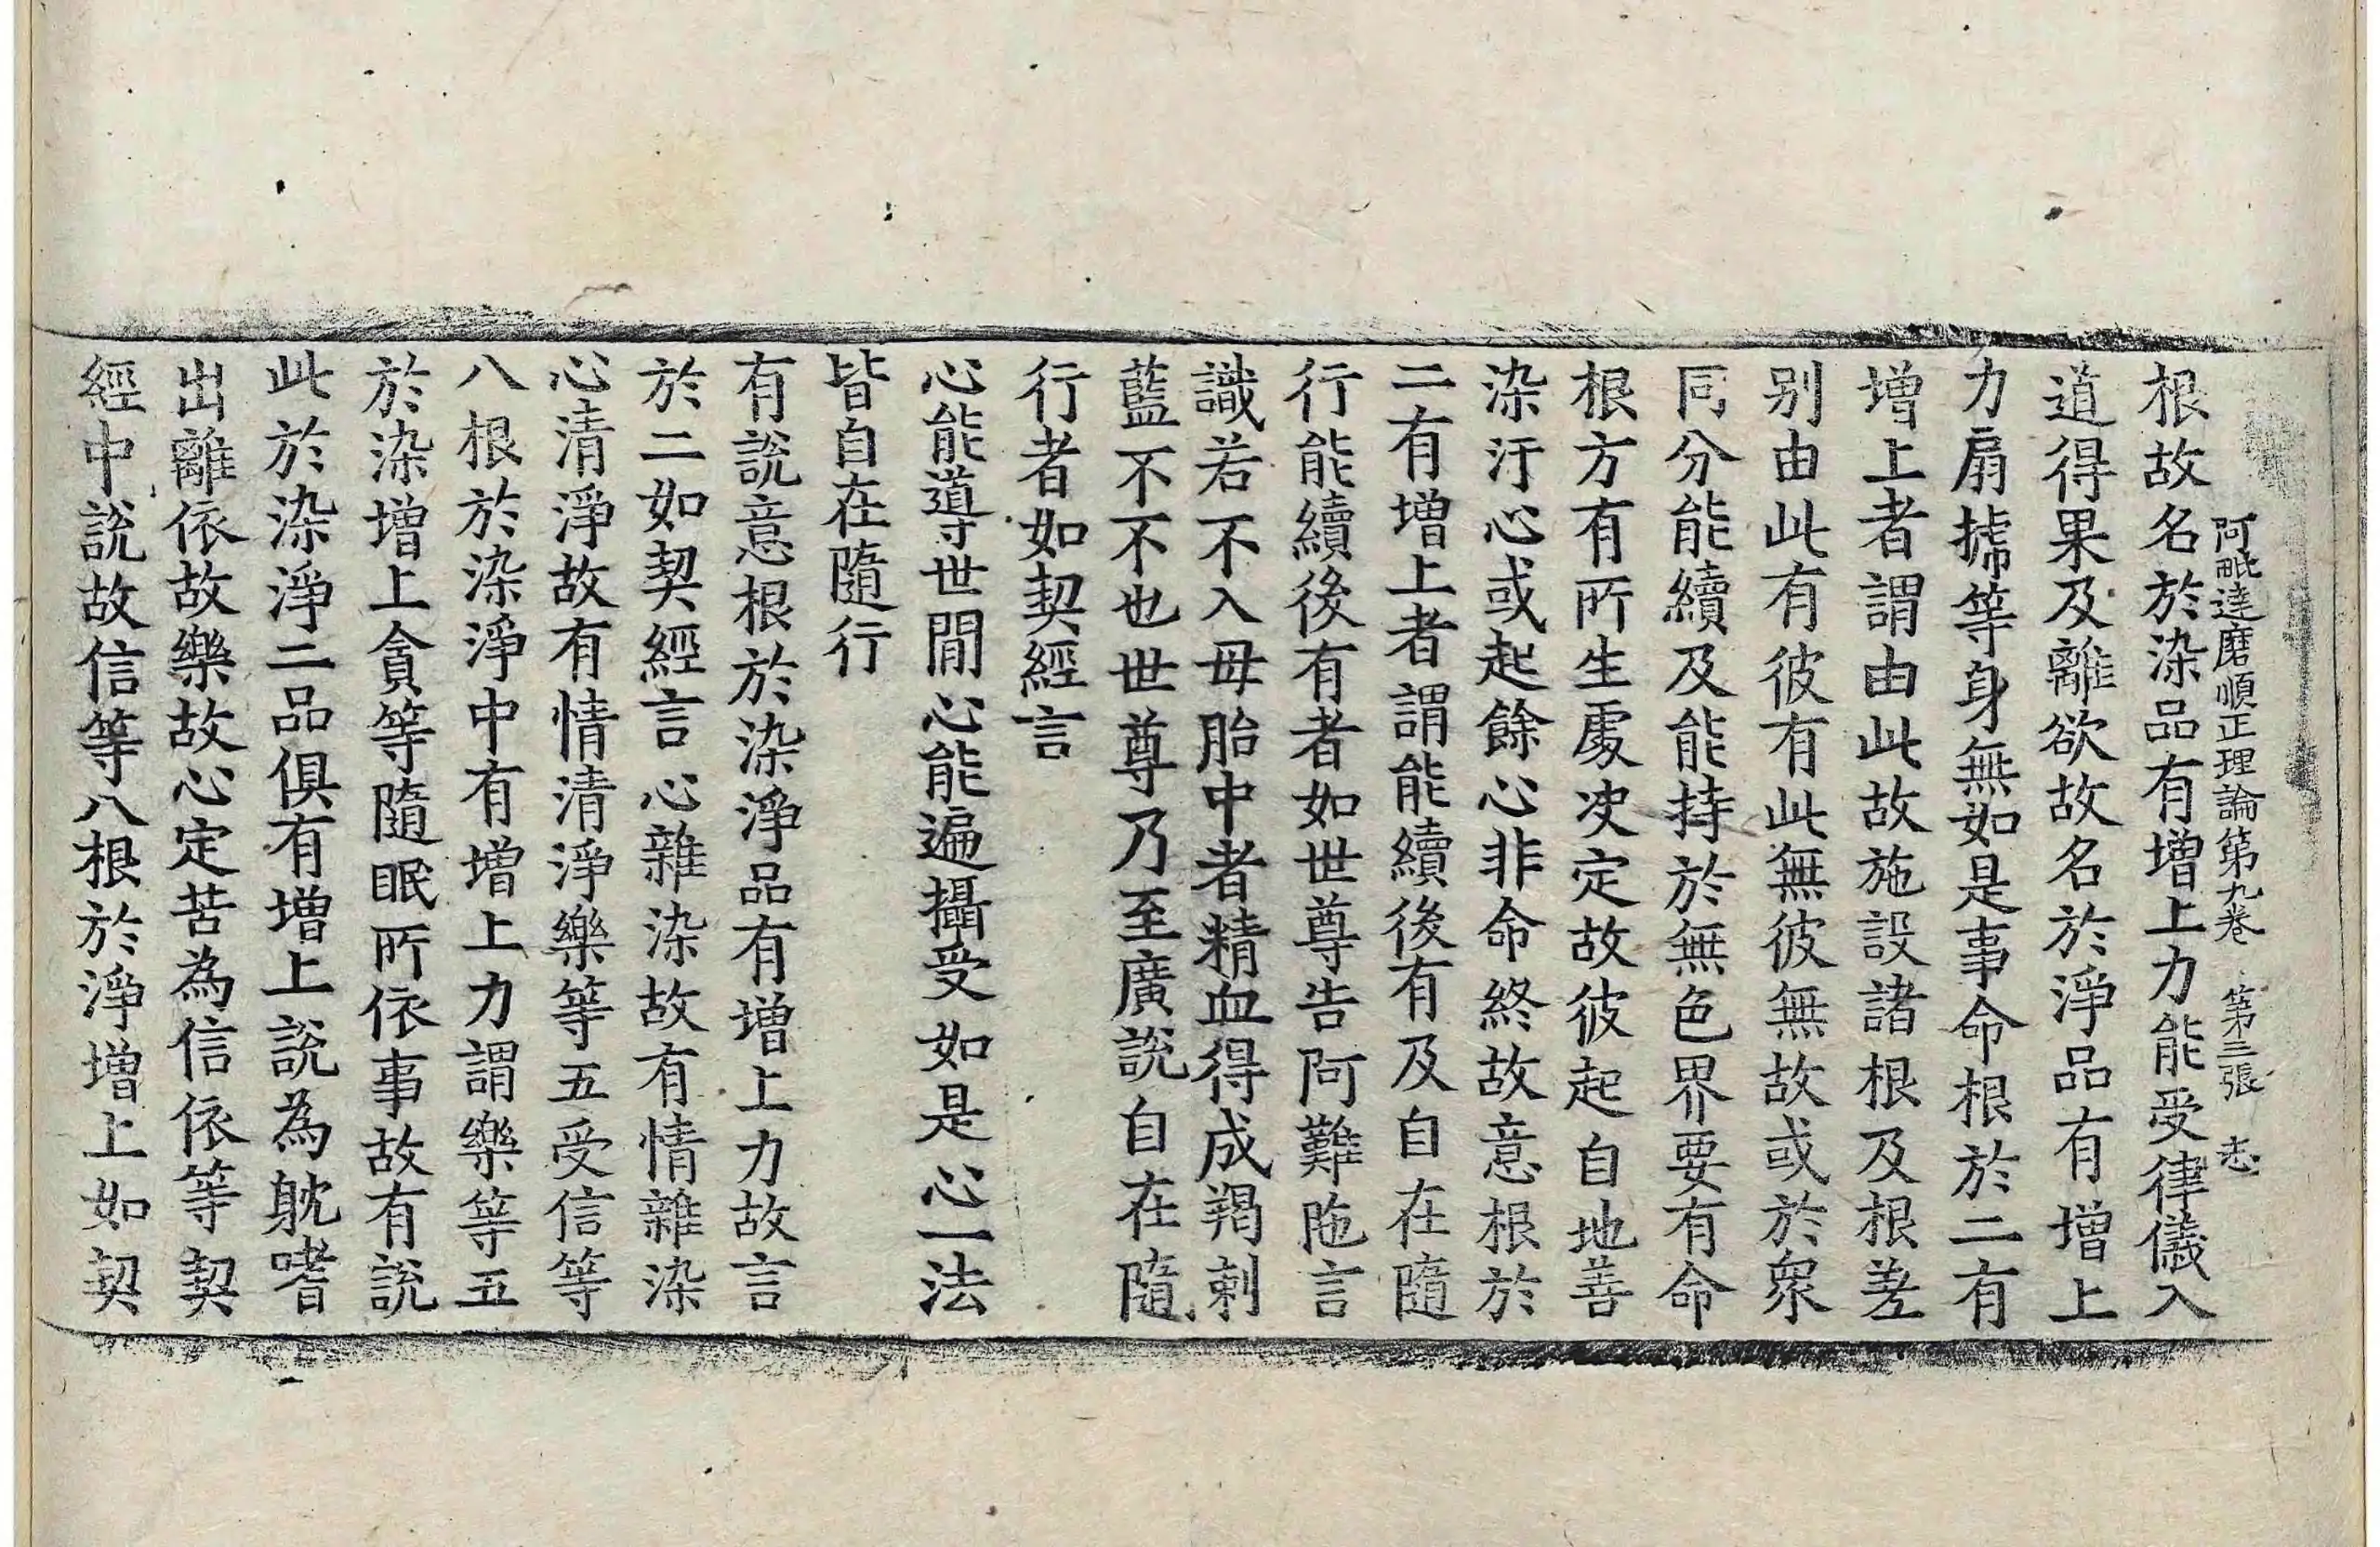 阿毗達磨順正理論第九卷 第三張 志
根故名於染品有增上力能受律儀入
道得果及離欲故名於淨品有增上
力扇搋等身無如是事命根於二有
增上者謂由此故施設諸根及根差
别由此有彼有此無彼無故或於衆
同分能續及能持於無色界要有命
根方有所生處决定故彼起自地善
染汙心或起餘心非命終故意根於
二有增上者謂能續後有及自在隨
行能續後有者如世尊告阿難陁言
識若不入母胎中者精血得成羯剌
藍不不也世尊乃至廣說自在隨
行者如契經言
心能導世間心能遍攝受如是心一法
皆自在隨行
有說意根於染淨品有增上力故言
於二如契經言心雜染故有情雜染
心清淨故有情清淨樂等五受信等
八根於染淨中有增上力謂樂等五
於染增上貪等隨眠所依事故有說
此於染淨二品俱有增上說為躭嗜
出離依故樂故心定苦為信依等契
經中說故信等八根於淨增上如契